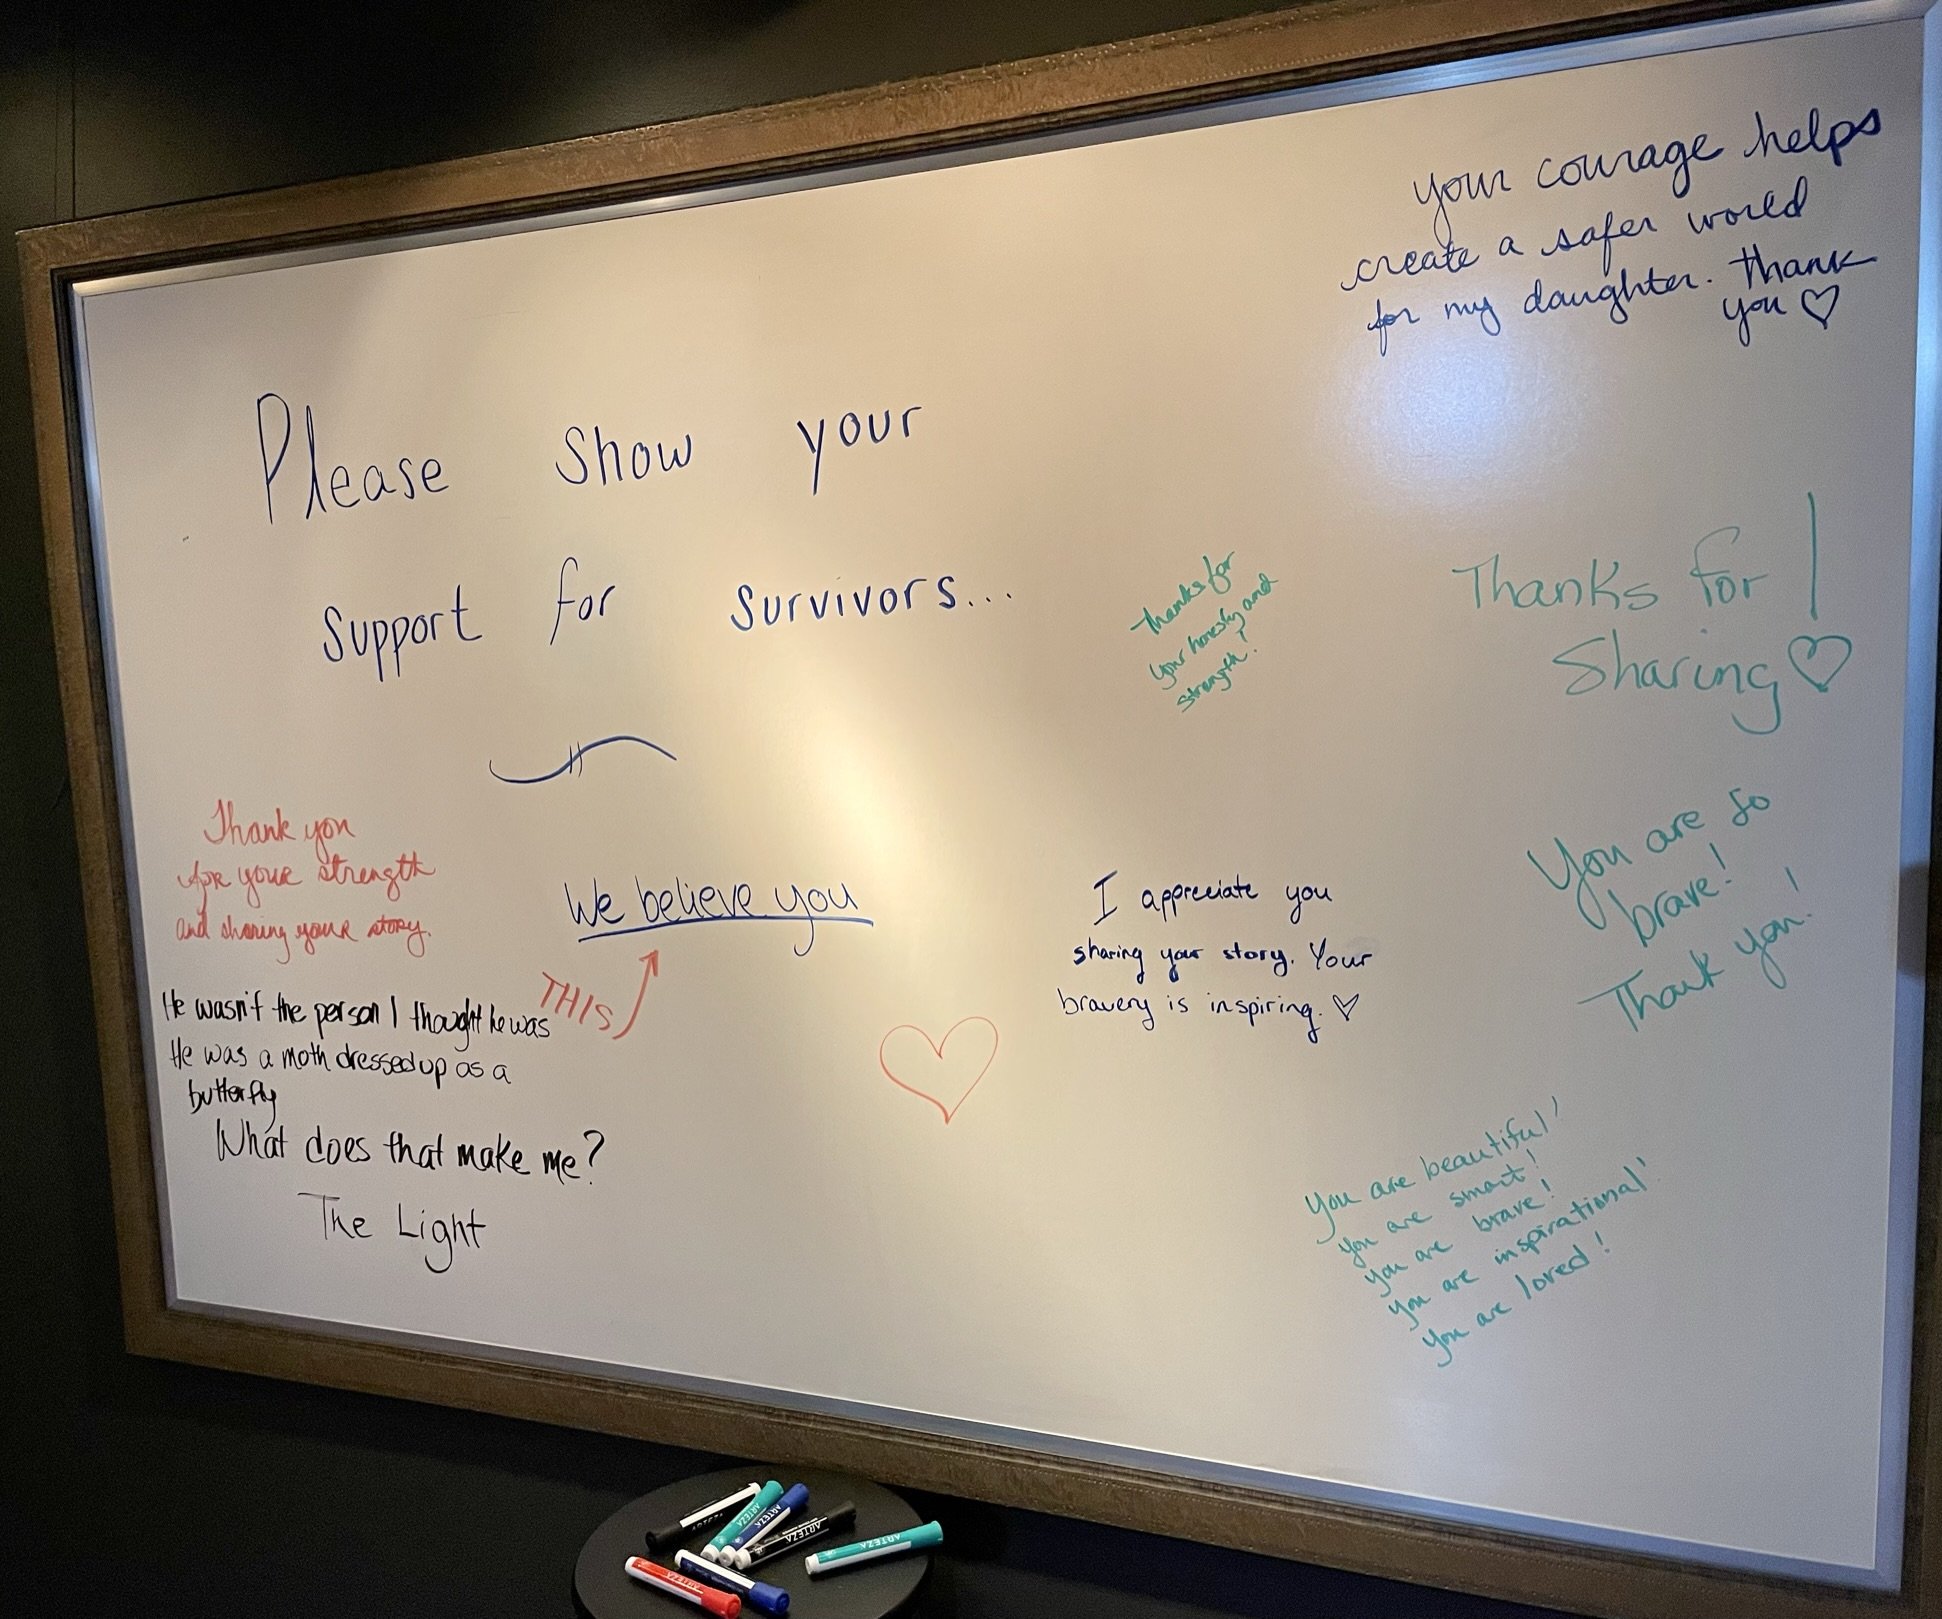 Please show your
support for survivors...
your courage helps
create a safer world
for my daughter. Thank
you ♡
Thanks for
your honesty and
strength!
Thanks for !
Sharing ♡
Thank you
for your strength
and sharing your story.
We believe you
THIS
I appreciate you
sharing your story. Your
bravery is inspiring. ♡
You are so
brave!
Thank you!
He wasn't the person I thought he was
He was a moth dressed up as a
butterfly
What does that make me?
The Light
You are beautiful!
You are smart!
You are brave!
You are inspirational!
You are loved!
ARTEZA
ARTEZA
ARTEZA
ARTEZA
ARTEZA